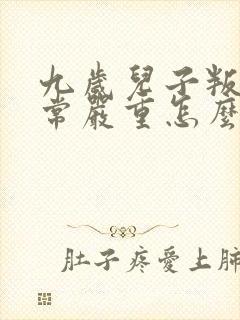 九歲兒子叛
常嚴重怎麼
肚子疼愛上肺